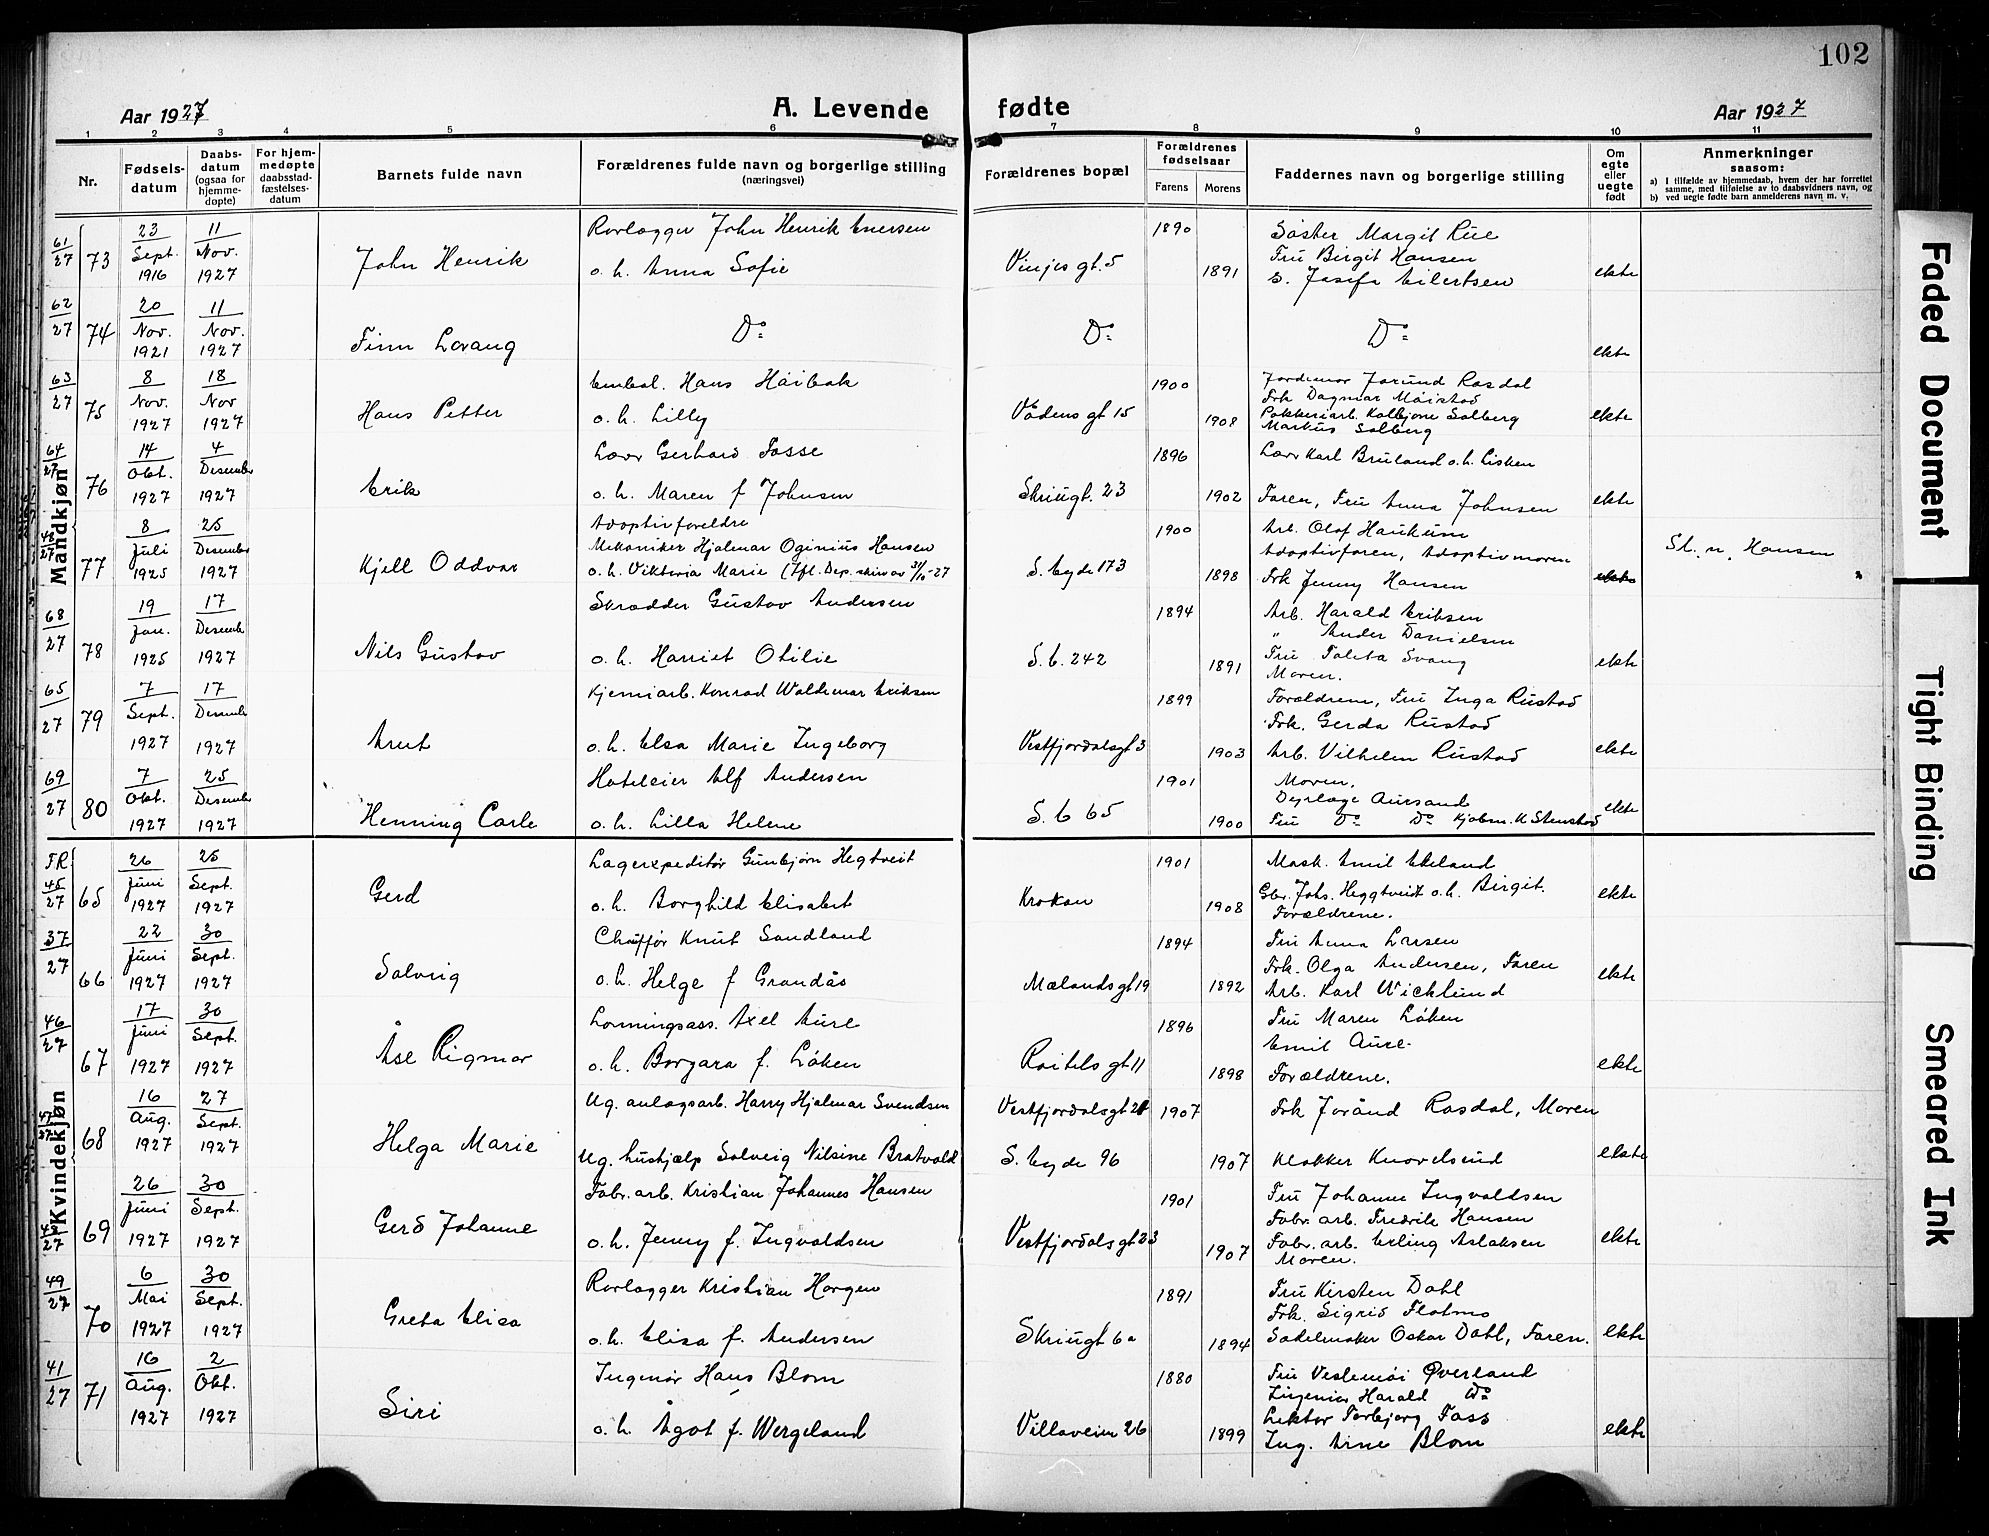 102
Aar 1927
A. Levende
fødte
Aar 1927
1 2 3 4 5 6 7 8 9 10 11
Nr.
Fødsels-
datum
Daabs-
datum
(ogsaa for
hjemme-
døpte)
For hjem-
medøpte
daabsstad-
fæstelses-
datum
Barnets fulde navn
Forældrenes fulde navn og borgerlige stilling
(næringsvei)
Forældrenes bopæl
Forældrenes
fødselsaar
Farens
Morens
Faddernes navn og borgerlige stilling
Om
egte
eller
uegte
født
Anmerkninger
saasom:
a) I tilfælde av hjemmedaab, hvem der har forrettet
samme, med tilføielse av to daabsvidners navn, og
b) ved uegte fødte barn anmelderens navn m. v.
Mandkjøn
61/27 73 23 Sept. 1916 11 Nov. 1927 John Henrik
Rørlægger John Henrik Enersen
o. h. Anna Sofie
Vinjes gt. 5 1890 1891
Søster Margit Rue
Fru Birgit Hansen
s. Josefa Eilertsen
ekte
62/27 74 20 Nov. 1921 11 Nov. 1927 Finn Lorang
Do Do Do ekte
63/27 75 8 Nov. 1927 18 Nov 1927 Hans Petter
Embal. Hans Håibak
o. h. Lilly
Vådens gt 15 1900 1908
Jordmor Jorund Rosdal
Frk Dagmar Måistad
Pakkeriarb. Kolbjørn Solberg
Markus Solberg
ekte
64/27 76 14 Okt. 1927 4 Desember 1927 Erik
Lærer Gerhard Fosse
o. h. Maren f Johnsen
Skriugt. 23 1896 1902
Lærer Karl Bruland o. h. Lisken
Faren, Fru Anna Johnsen
ekte
48/27 77 8 Juli 1925 25 Desember 1927 Kjell Oddvar
Adoptivforeldre
Mekaniker Hjalmar Oginius Hansen
o. h. Viktoria Marie (Ifl. Dep. skriv av 31/10-27
S. byde 173 1900 1898
Arb. Olof Haukum
Adoptivfaren, Adoptivmoren
Frk Jenny Hansen
ekte
Sl. n. Hansen
68/27 78 19 Jan. 1925 17 Desember 1927 Nils Gustav
Skrædder Gustav Andersen
o. h. Harriet Otilie
S. b. 242 1894 1891
Arb. Harald Eriksen
" Ander Danielsen
Fru Taleta Svang
Moren.
ekte
65/27 79 7 Sept. 1927 17 Desember 1927 Arnt
Kjemiarb. Konrad Waldemar Eriksen
o. h. Elsa Marie Ingeborg
Vestfjordalsgt 3 1899 1903
Forældrene, Fru Inga Rustad
Frk. Gerda Rustad
Arb. Vilhelm Rustad
ekte
69/27 80 7 Okt. 1927 25 Desember 1927 Henning Carle
Hoteleier Alf Andersen
o. h. Lilla Helene
S. b 65 1901 1900
Moren,
Dyrlæge Aursand
Fru Do Do Kjøbm. K Stenstad
ekte
Kvindekjøn
FR 45/27 65 26 Juni 1927 25 Sept. 1927 Gerd
Lagerexpeditør Gunbjørn Hegtveit
o. h. Borghild Elisabet
Krokan 1901 1908
Mask. Emil Ekeland
Gbr. Johs. Heggtveit o. h. Birgit.
Forældrene.
ekte
37/27 66 22 Juni 1927 30 Sept. 1927 Solveig
Chauffør Knut Sandland
o. h. Helge f Grandås
Mælandsgt 19 1894 1892
Fru Anna Larsen
Frk. Olga Andersen, Faren
Arb. Karl Wicklund
ekte
46/27 67 17 Juni 1927 30 Sept. 1927 Åse Rigmor
Lønningsass. Axel Aure
o. h. Borgara f. Løken
Roilels gt 11 1896 1898
Fru Maren Løken
Emil Aure.
Forældrene.
ekte
47/27 68 16 Aug. 1927 27 Sept. 1927 Helga Marie
Ug. anlægsarb. Harry Hjalmar Svendsen
Ug. hushjælp Solveig Nilsine Bratvold
Vestfjordalsgt 21 1907
S. byde 96 1907
Frk Jorånd Rosdal, Moren
Klokker Knovelsrud
ekte
43/27 69 26 Juni 1927 30 Sept. 1927 Gerd Johanne
Fabr. arb. Kristian Johannes Hansen
o. h. Jenny f. Ingvaldsen
Vestfjordalsgt 23 1901 1907
Fru Johanne Ingvaldsen
Fabr. arb. Fredrik Hansen
Fabr. arb. Erling Aslaksen
Moren.
ekte
49/27 70 6 Mai 1927 30 Sept. 1927 Greta Elisa
Rørlægger Kristian Horgen
o. h. Elisa f. Andersen
Skriugt 6a 1891 1894
Fru Kirsten Dahl
Frk. Sigrid Flatmo
Sadelmaker Oskar Dahl, Faren.
ekte
41/27 71 16 Aug. 1927 2 Okt. 1927 Siri
Ingeniør Hans Blom
o. h. Ågot f. Wergeland
Villaveien 26 1880 1899
Fru Veslemøi Øverland
Ingeniør Harald Do
Lektor Torbjørg Foss
Ing. Arne Blom
ekte
Faded Document
Tight Binding
Smeared Ink